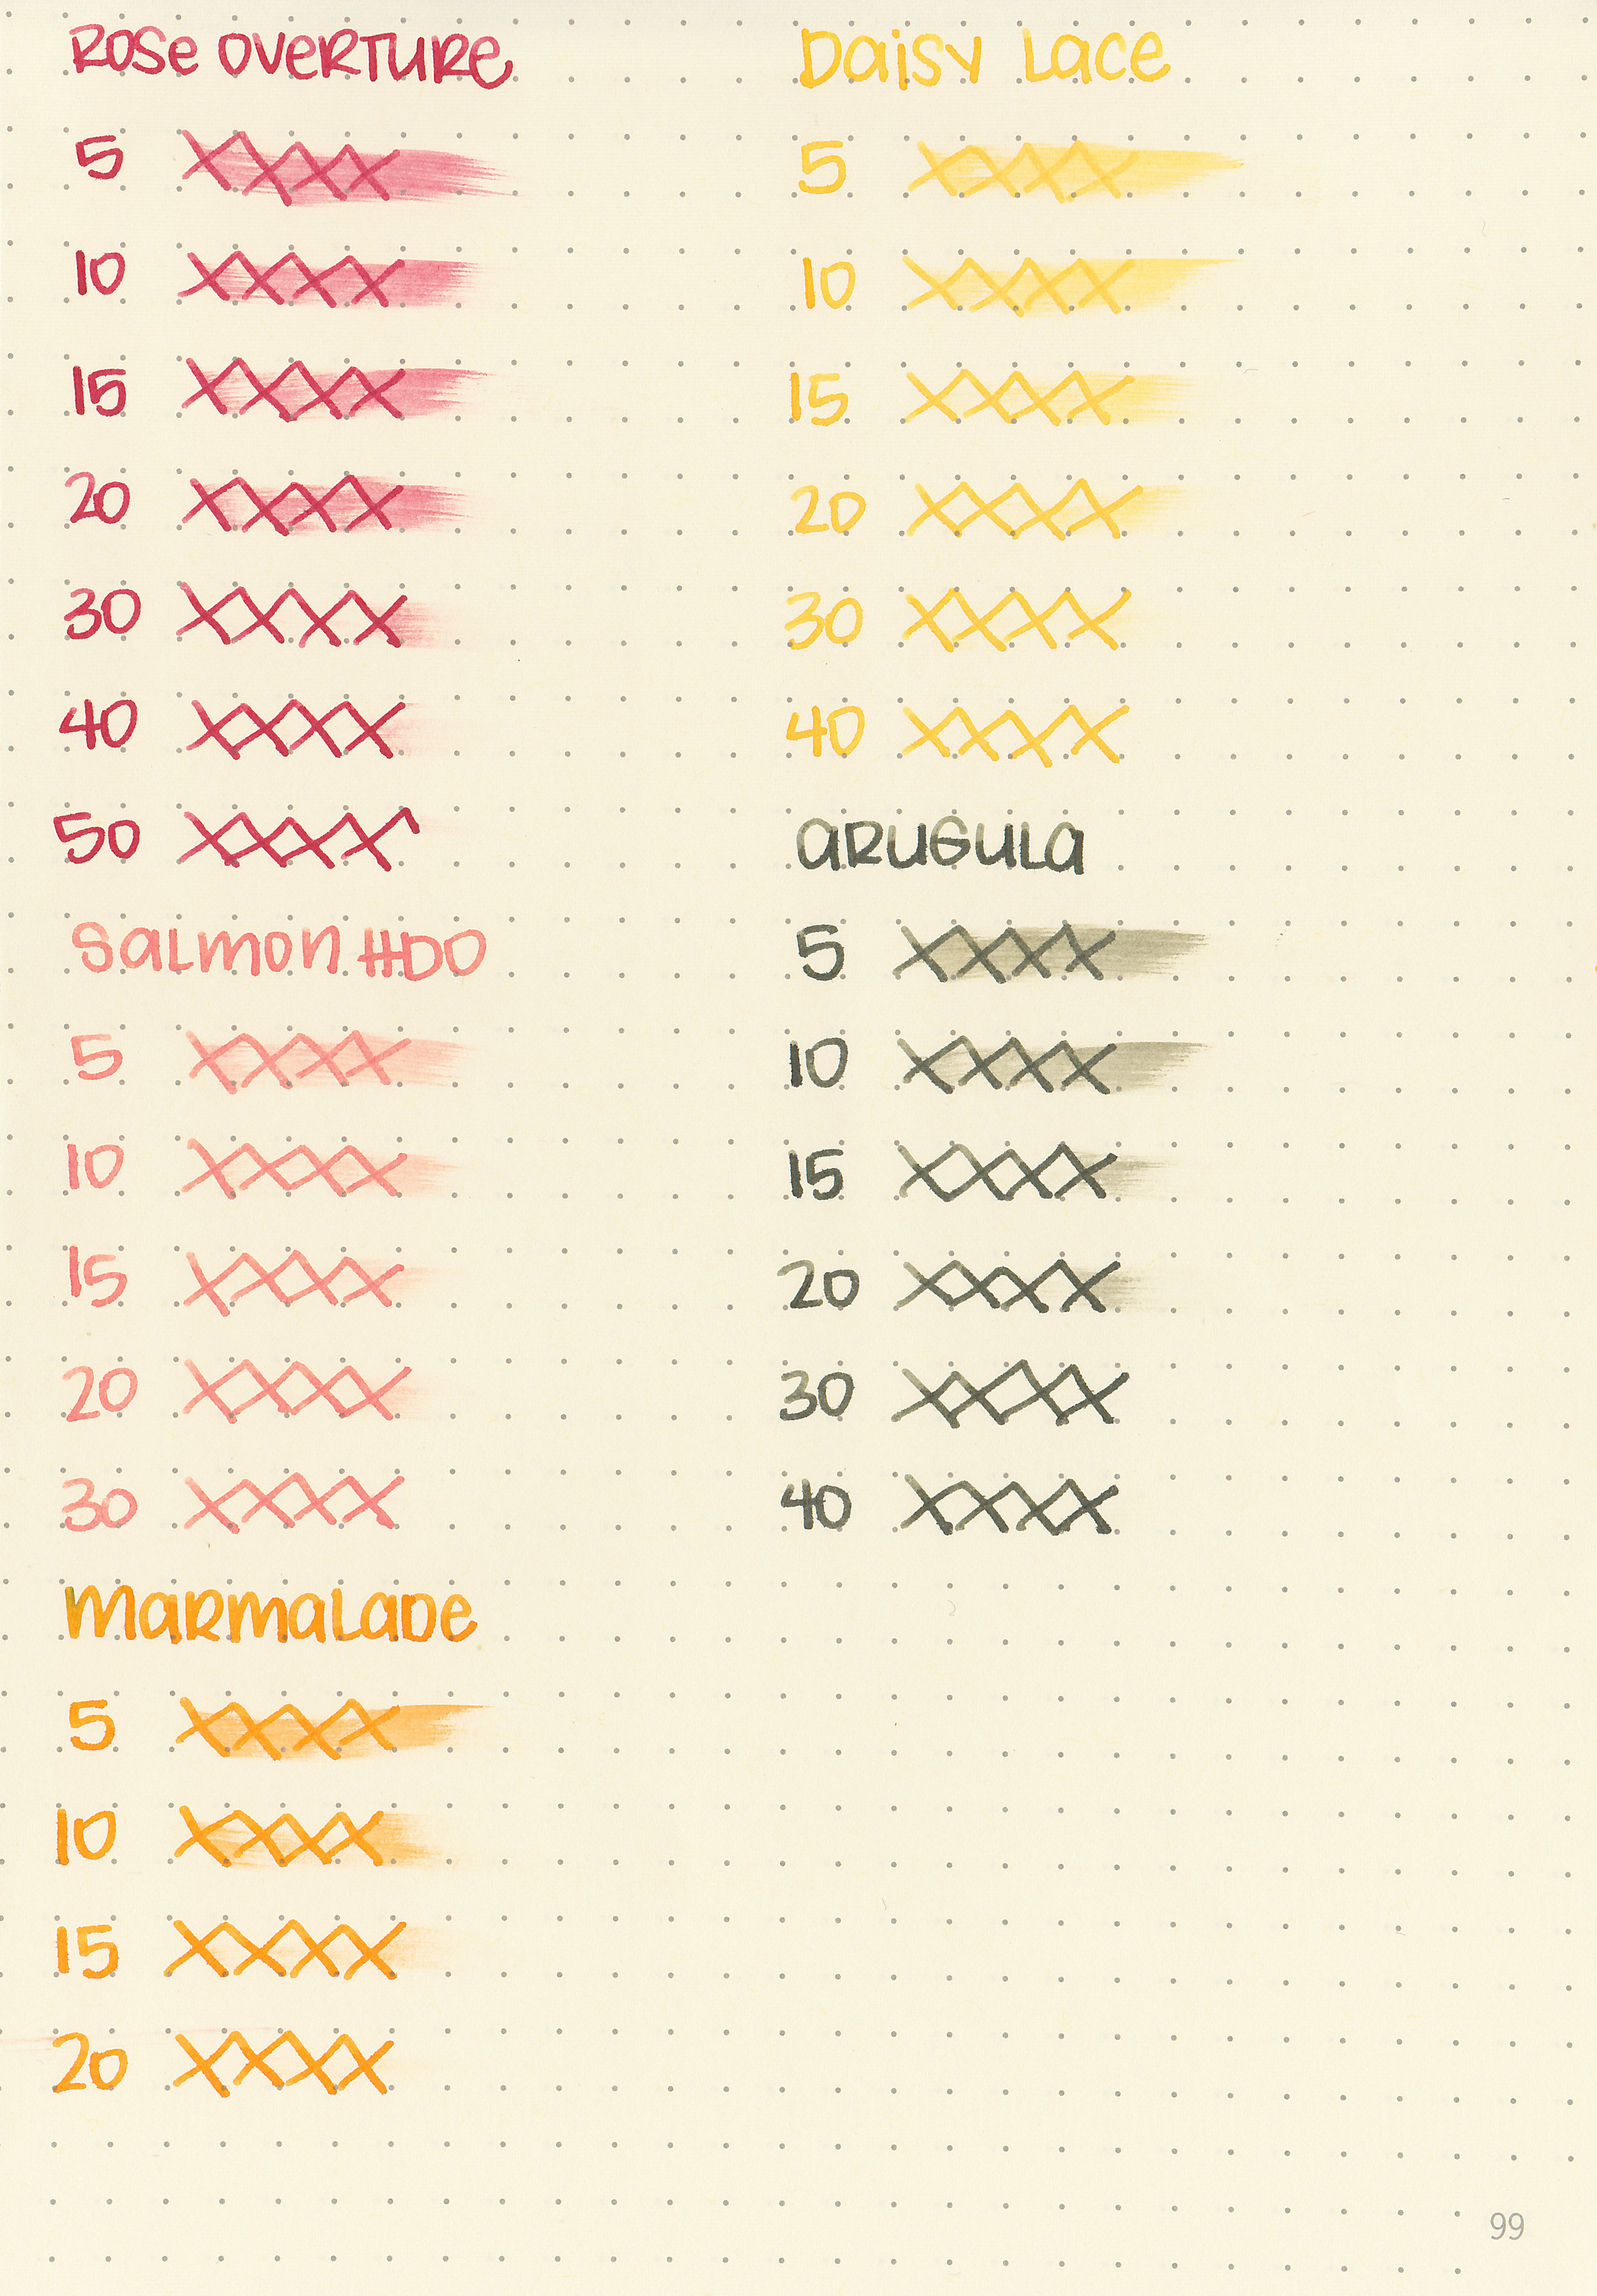 Rose Overture
5 XXXX
10 XXXX
15 XXXX
20 XXXX
30 XXXX
40 XXXX
50 XXXX
Salmon HDO
5 XXXX
10 XXXX
15 XXXX
20 XXXX
30 XXXX
Marmalade
5 XXXX
10 XXXX
15 XXXX
20 XXXX
Daisy Lace
5 XXXX
10 XXXX
15 XXXX
20 XXXX
30 XXXX
40 XXXX
Arugula
5 XXXX
10 XXXX
15 XXXX
20 XXXX
30 XXXX
40 XXXX
99